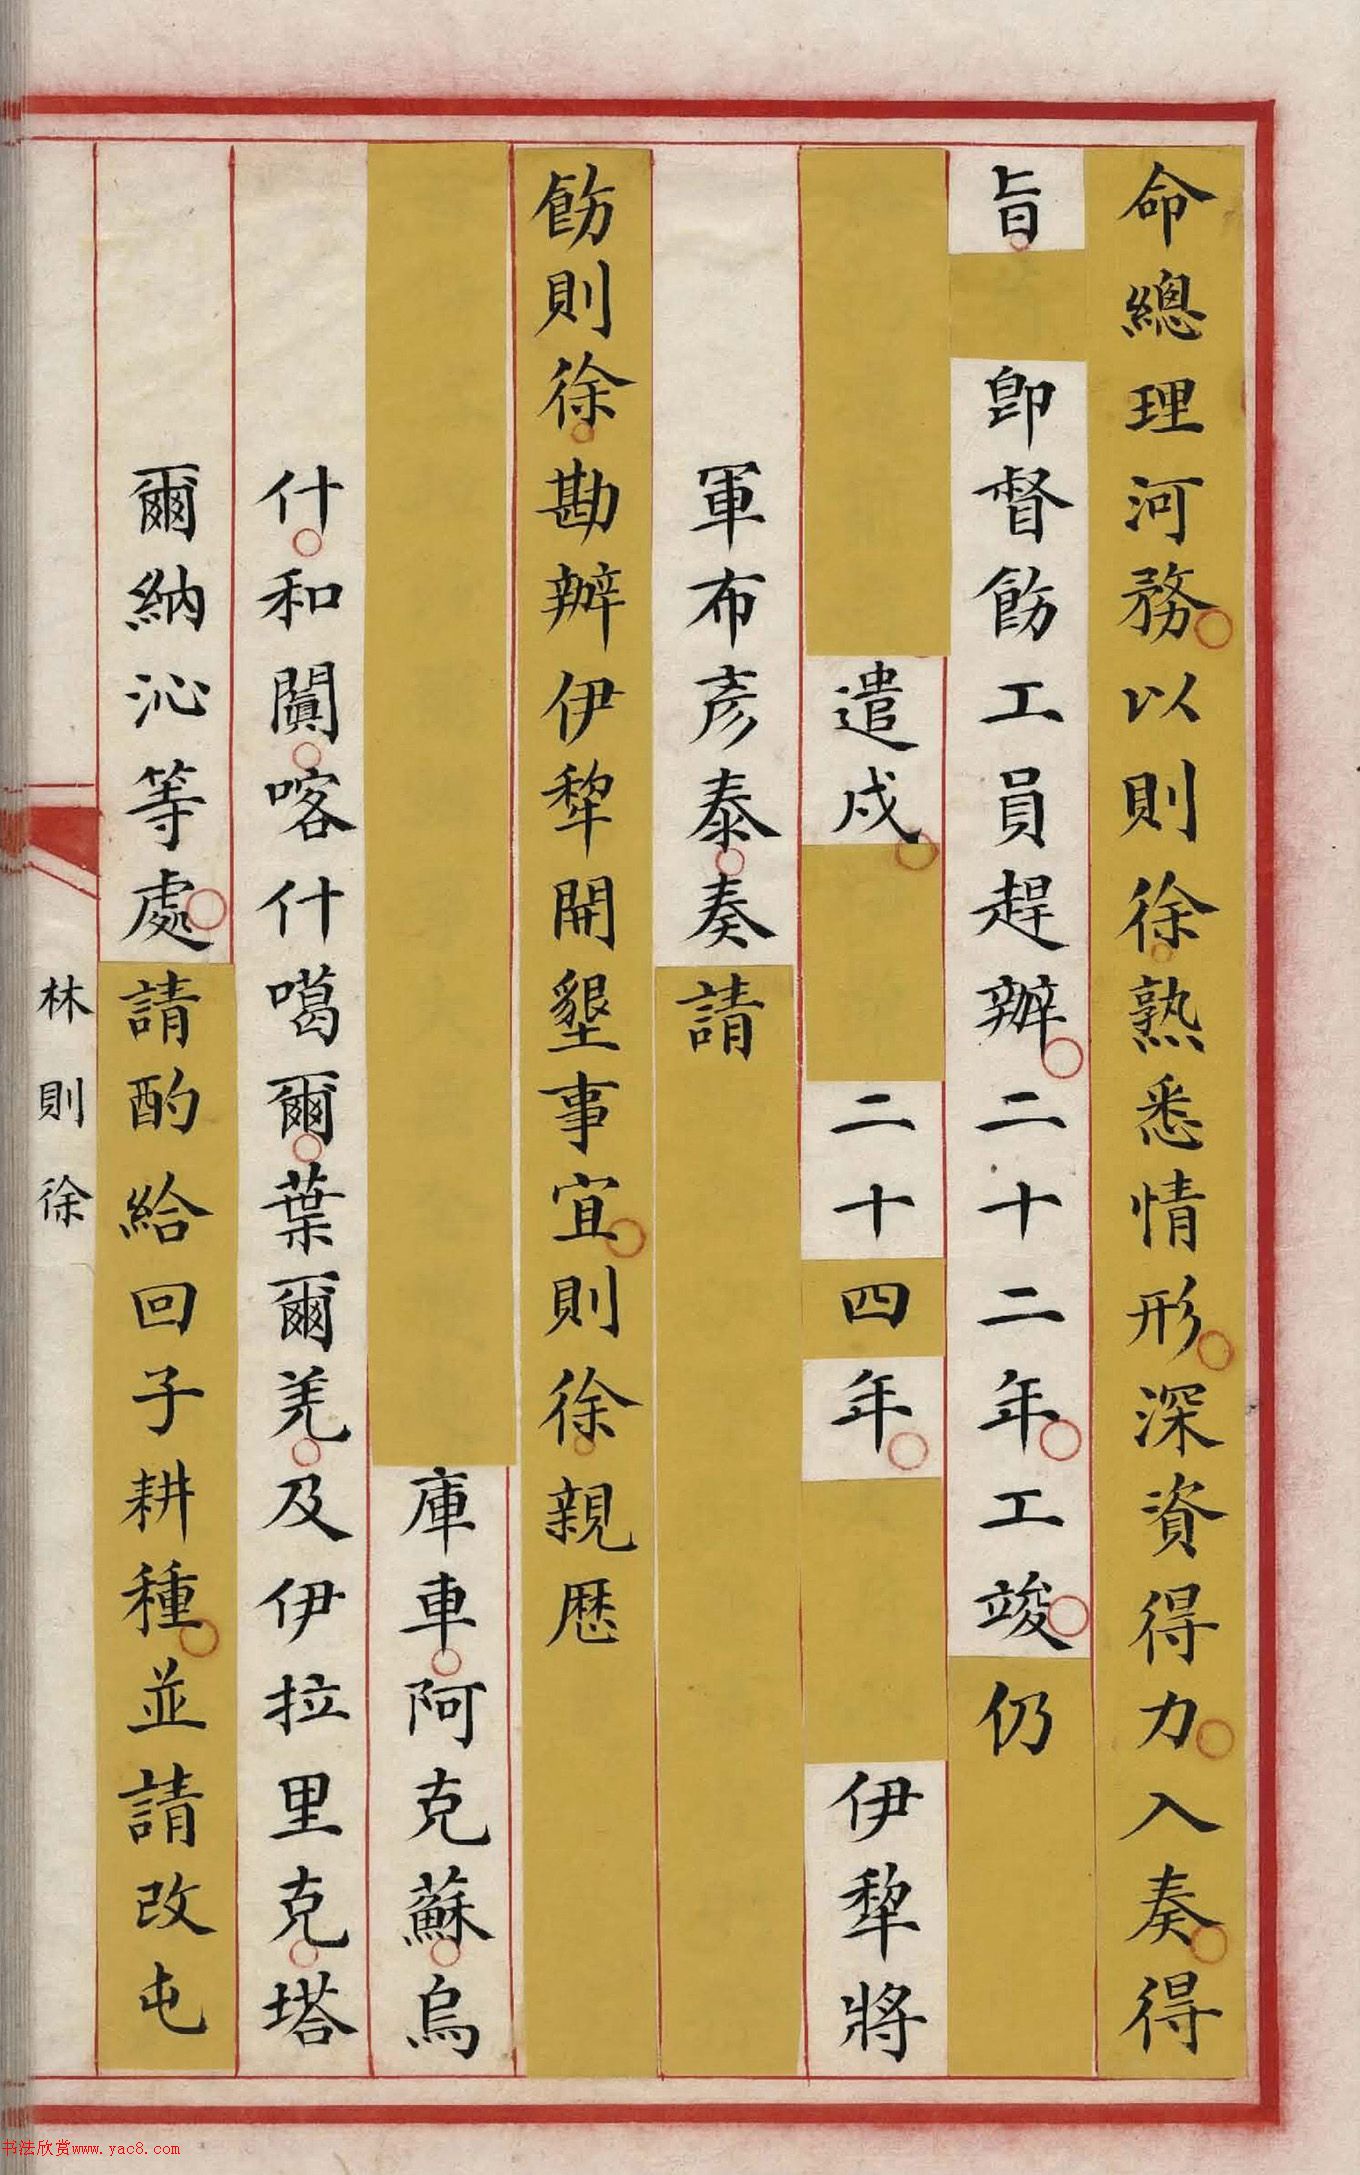 命總理河務以則徐熟悉情形深資得力入奏得
旨卽督飭工員趕辦二十二年工竣仍
遣戍二十四年伊犂將
軍布彥泰奏請
飭則徐勘辦伊犂開墾事宜則徐親歷
庫車阿克蘇烏
什和闐喀什噶爾葉爾羌及伊拉里克塔
爾納沁等處請酌給回子耕種並請改屯
林則徐
书法欣赏www.yac8.com